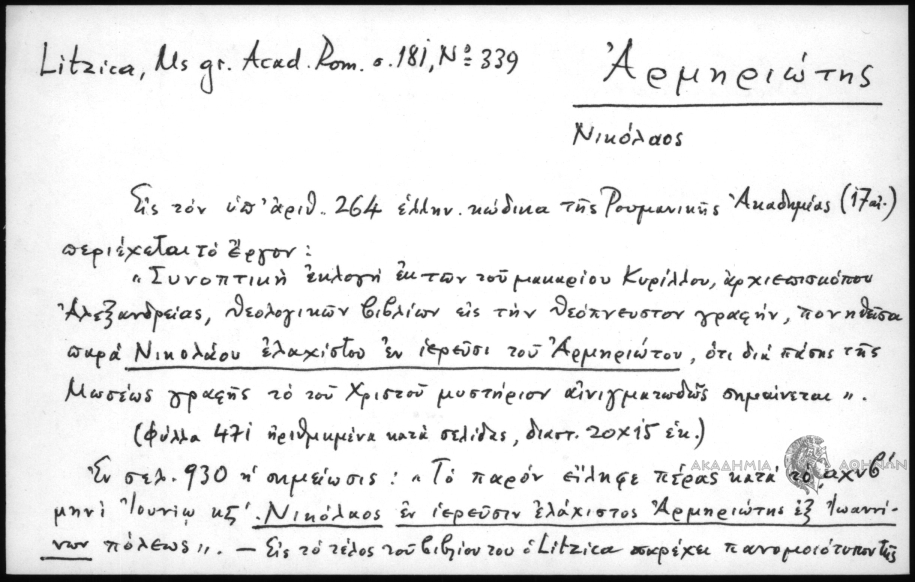 Litzica, Ms gr. Acad. Rom. σ. 181, Nº 339
Ἀρμηριώτης
Νικόλαος
Εἰς τὸν ὑπ' ἀριθ. 264 ἑλλην. κώδικα τῆς Ρουμανικῆς Ἀκαδημίας (17 αἰ.)
περιέχεται τὸ ἔργον:
"Συνοπτικὴ ἐκλογὴ ἐκ τῶν τοῦ μακαρίου Κυρίλλου, ἀρχιεπισκόπου
Ἀλεξανδρείας, θεολογικῶν βιβλίων εἰς τὴν θεόπνευστον γραφήν, πονηθεῖσα
παρὰ Νικολάου ἐλαχίστου ἐν ἱερεῦσι τοῦ Ἀρμηριώτου, ὅτι διὰ πάσης τῆς
Μωσέως γραφῆς τὸ τοῦ Χριστοῦ μυστήριον αἰνιγματωδῶς σημαίνεται".
(φύλλα 471 ἠριθμημένα κατὰ σελίδας, διαστ. 20×15 ἑκ.)
Ἐν σελ. 930 ἡ σημείωσις: "Τὸ παρὸν εἴληφε πέρας κατὰ τὸ αχνβ'
ΑΚΑΔΗΜΙΑ ΑΘΗΝΩΝ
μηνὶ Ἰουνίῳ κξ'. Νικόλαος ἐν ἱερεῦσιν ἐλάχιστος Ἀρμηριώτης ἐξ Ἰωαννί-
νων πόλεως". — Εἰς τὸ τέλος τοῦ βιβλίου του ὁ Litzica παρέχει πανομοιότυπον τῆς